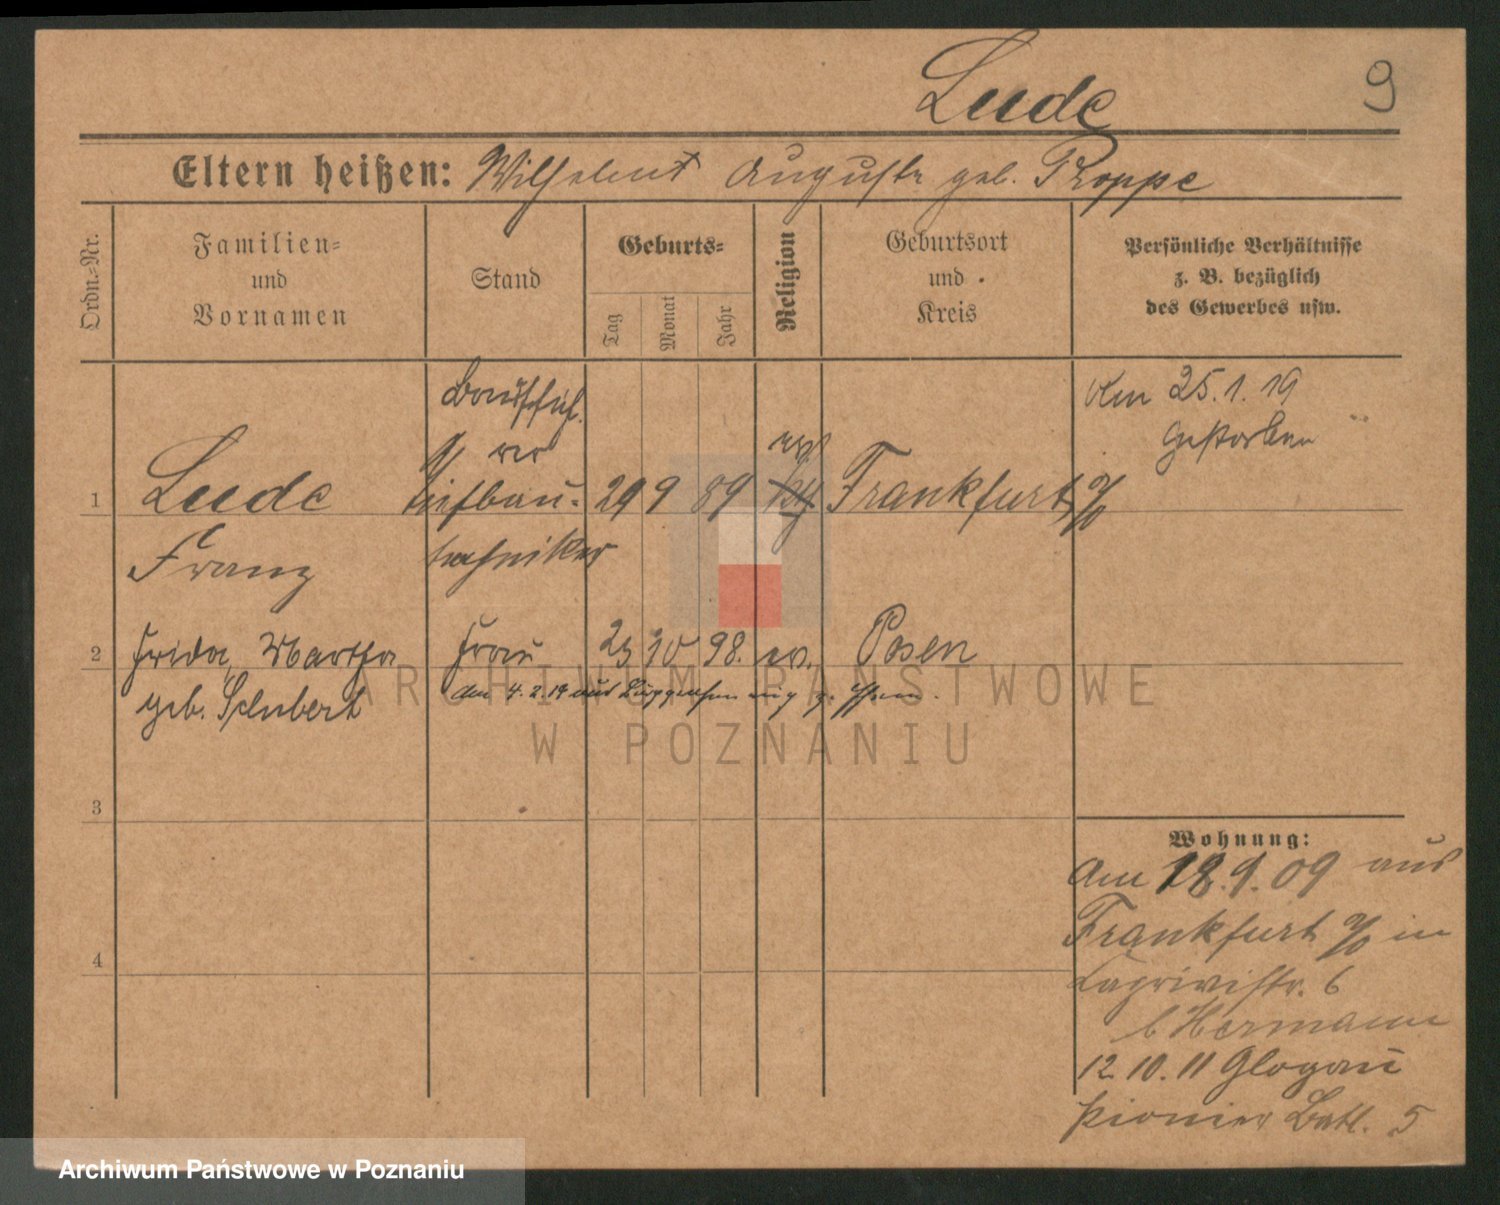 Lude
9
Eltern heißen: Wilhelm u Auguste geb. Proppe
Ordn.-Nr.
Familien-
und
Vornamen
Stand
Geburts-
Tag
Monat
Jahr
Religion
Geburtsort
und
Kreis
Persönliche Verhältnisse
z. B. bezüglich
des Gewerbes usw.
Am 25.1.19
gestorben
1
Lude
Franz
Tiefbau-
techniker
29 9 89
ev
Frankfurt a/O
2
Frida, Martha
geb. Schubert
Frau
23 10 98. ev. Posen
3
4
Wohnung:
Am 18.9.09 aus
Frankfurt a/O in
6
b Hermann
12.10.11 Glogau
Pionier Batl. 5
ARCHIWUM PAŃSTWOWE
W POZNANIU
Archiwum Państwowe w Poznaniu